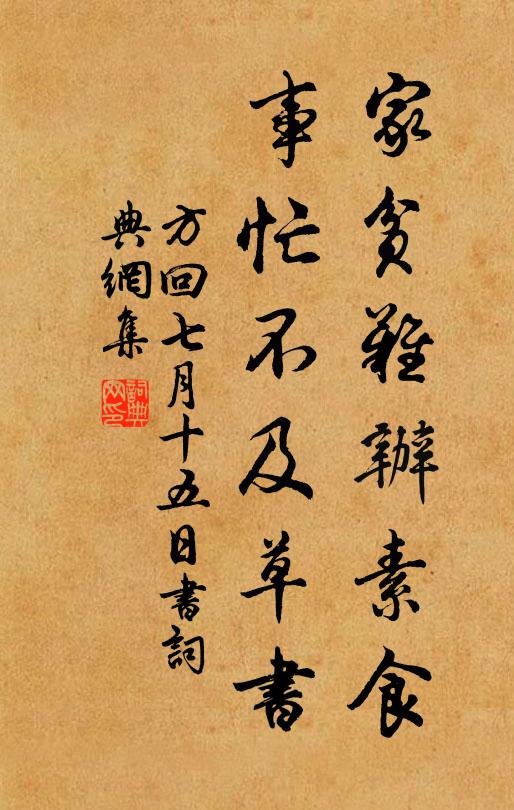 家貧難辦素食
事忙不及草書
方回七月十五日書詞
典網集
詞典
网印